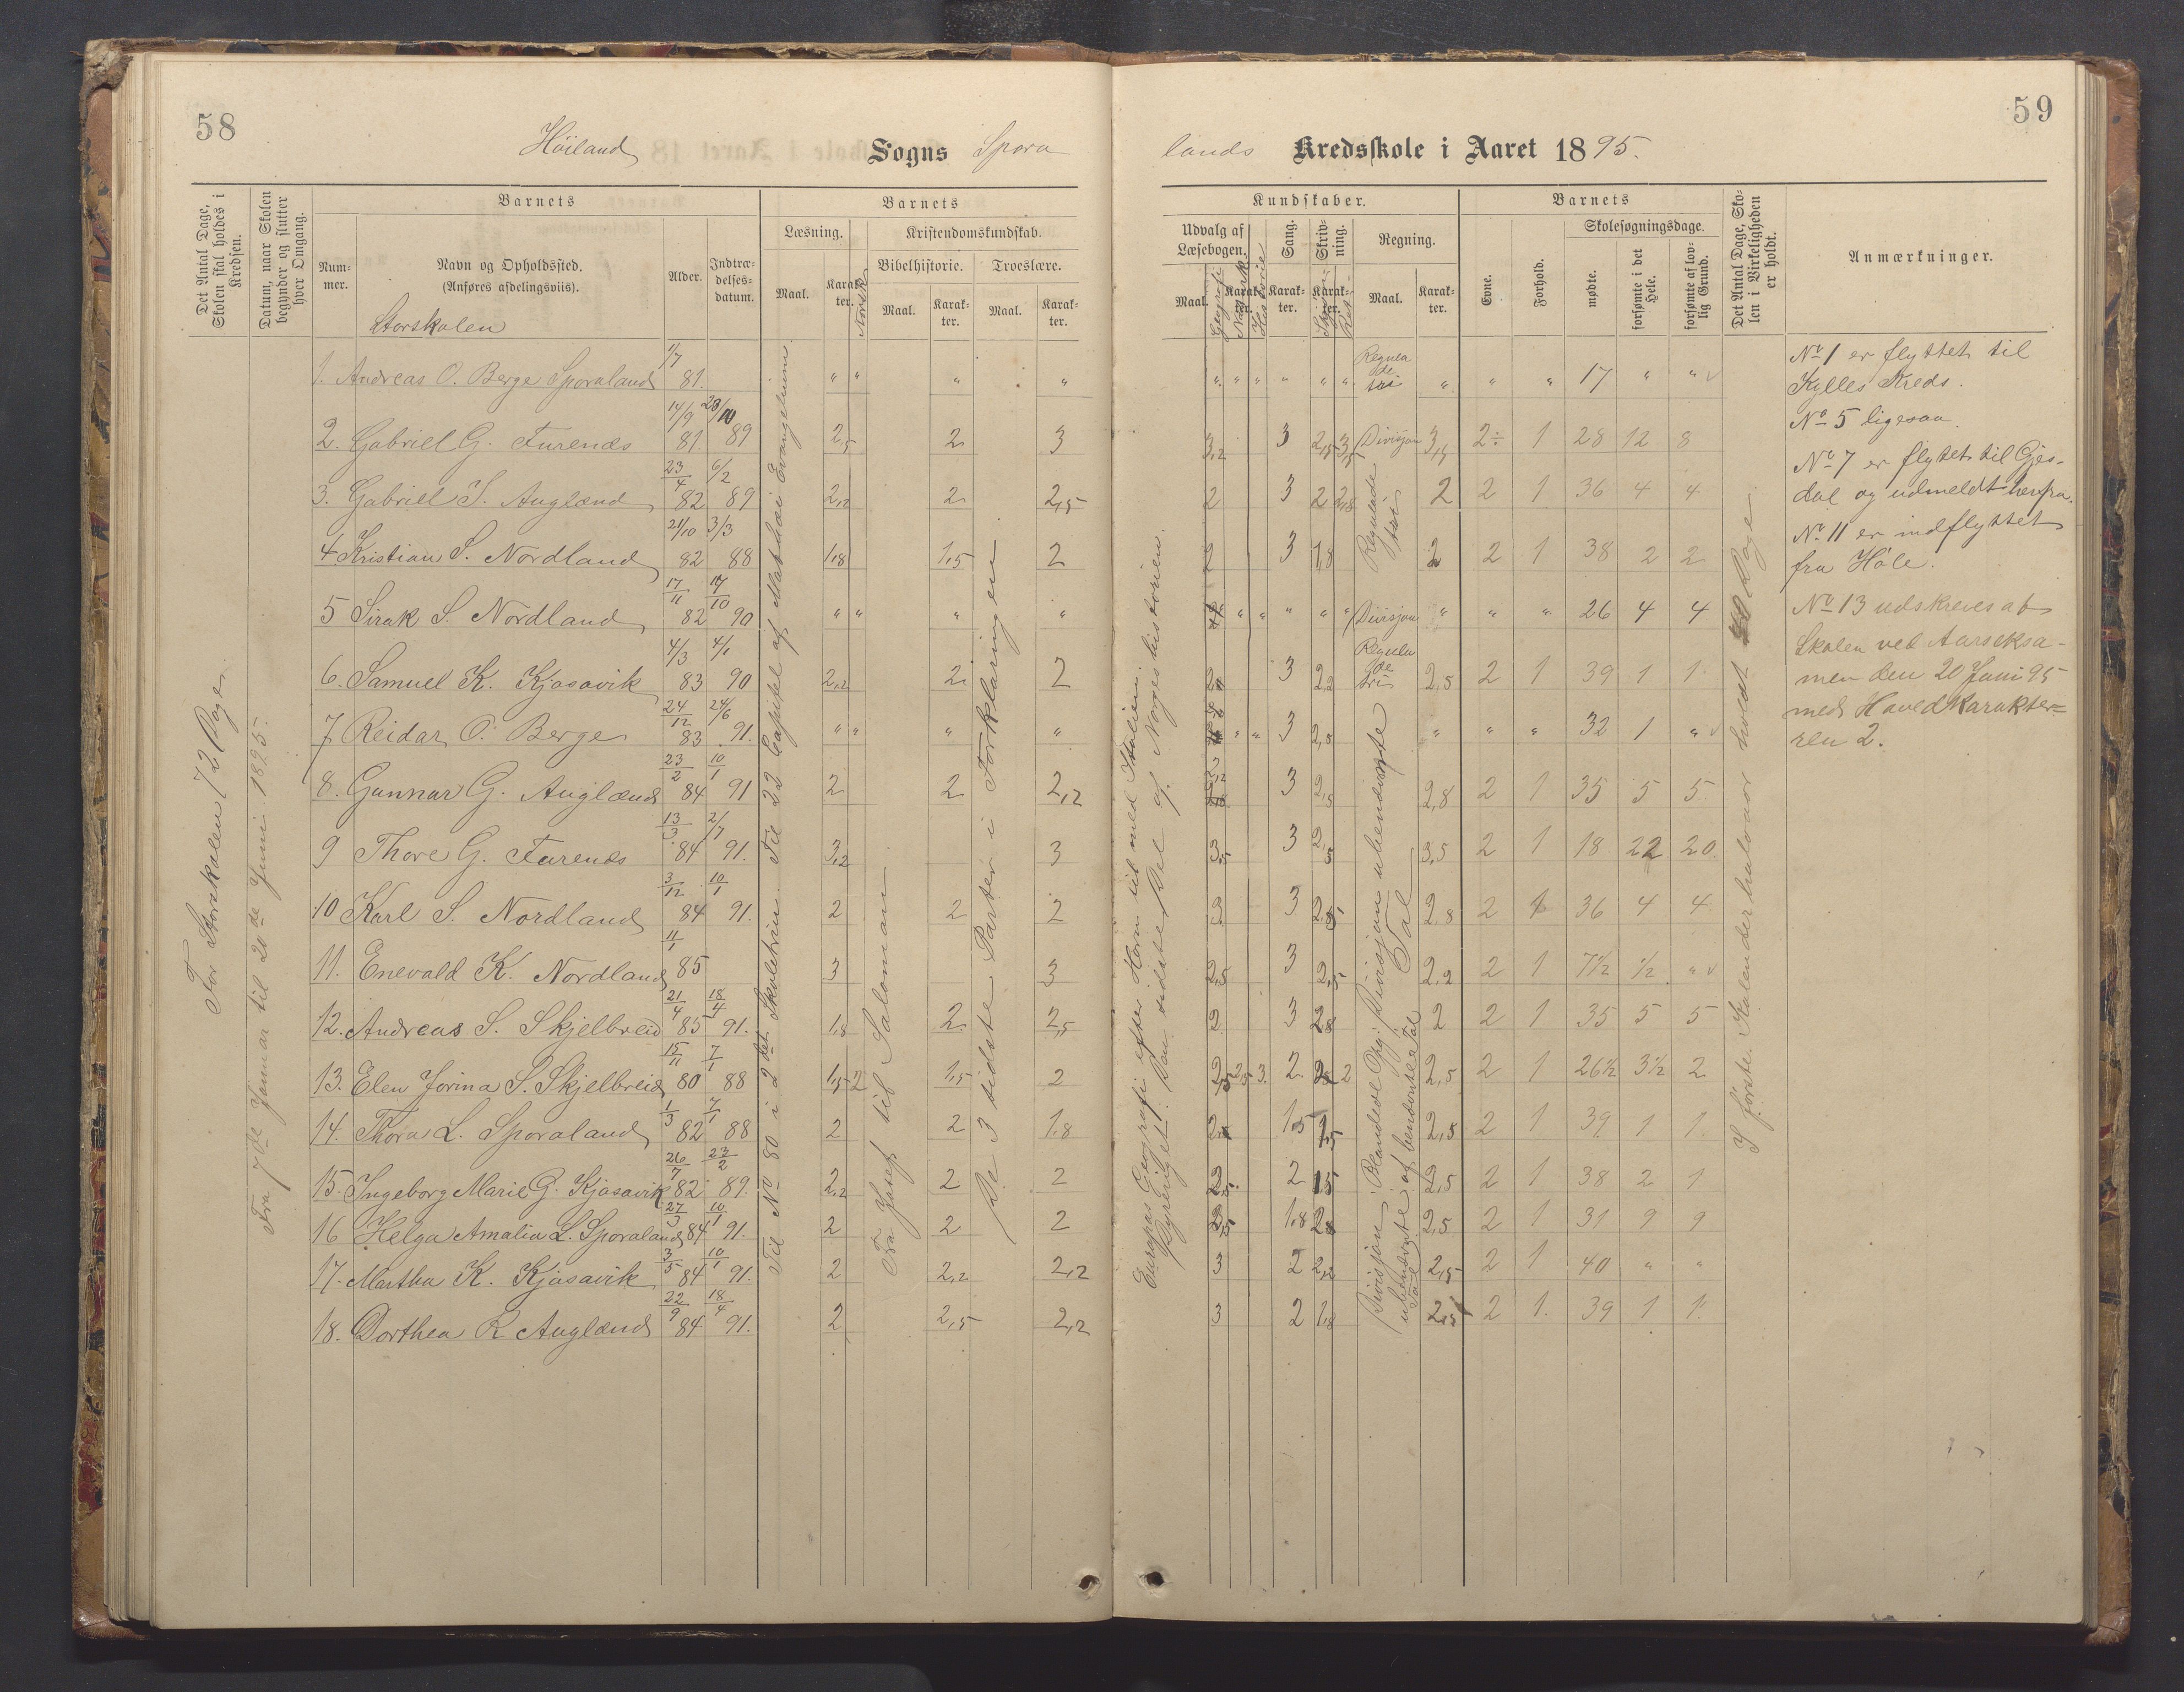 58
Höiland Sogns Spora
Det Antal Dage, Skolen skal holdes i Kredsen.
Datum, naar Skolen begynder og slutter hver Omgang.
Barnets
Barnets
Læsning.
Kristendomskundskab.
Num-mer.
Navn og Opholdssted.
(Anføres afdelingsviis).
Alder.
Indtræ-delses-datum.
Bibelhistorie.
Troeslære.
Maal.
Karak-ter.
Norsk
Maal.
Karak-ter.
Maal.
Karak-ter.
Storskolen
For Storskolen 72 Dage.
Fra 7de Januar til 20de Juni 1895.
Til No 80 i 2det Skoletrin. Til 22 Capitel af Mathæi Evangelium
Fra Josef til Salomon
De 3 sidste Parter i Forklaringen
1. Andreas O. Berge Sporaland 1/7 81. " " " "
2. Gabriel G. Furenes 14/9 81 23/10 89 2,5 2 3
3. Gabriel S. Auglænd 23/4 82 6/2 89 2,2 2 2,5
4 Kristian S. Nordland 21/10 82 3/3 88 1,8 1,5 2
5 Sirak S. Nordland 17/11 82 17/10 90 " " " "
6. Samuel K. Kjosavik 4/3 83 4/1 90 2,2 2 2
7 Reidar O. Berge 24/12 83 24/6 91. " " " "
8. Gunnar G. Auglænd 23/2 84 10/1 91 2 2 2,2
9 Thore G. Furenes 13/3 84 2/7 91. 3,2 3
10 Karl S. Nordland 3/12 84 10/1 91. 2 2 2
11. Enevald K. Nordland 11/1 85 3 3
12. Andreas S. Skjelbreid 21/4 85 18/4 91. 1,8 2 2,5
13. Elen Jorina S. Skjelbreid 15/11 80 7/1 88 1,5 2 1,5 2
14. Thora L. Sporaland 1/3 82 7/1 88 2 2 1,8
15. Ingeborg Marie G. Kjosavik 26/7 82 23/2 89. 2,2 2 2
16 Helga Amalia L. Sporaland 27/3 84 10/1 91. 2 2 2
17. Martha K. Kjosavik 3/5 84 10/1 91. 2 2,2 2,2
18. Dorthea R Auglænd 22/9 84 18/4 91. 2 2,5 2,2
59
lands Kredsskole i Aaret 1895.
Kundskaber.
Barnets
Udvalg af Læsebogen.
Sang.
Skriv-ning.
Regning.
Skolesøgningsdage.
Maal.
Geografi
Karak-ter.
Historie
Karak-ter.
Karak-ter.
Maal.
Karak-ter.
Evne.
Forhold.
mødte.
forsømte i det Hele.
forsømte af lov-lig Grund.
Det Antal Dage, Sko-len i Virkeligheden er holdt.
Anmærkninger.
Europas Geografi efter Horn til med Italien
Pyrenget. Den sidste Del af Norgeshistorien
I første Kalenderhalvaar holdt Dage
" " " " " " " " " 17 " "
3,2 3 2,5 3,5 Divisjon 3,5 2÷ 1 28 12 8
2 3 2 2,8 2 2 1 36 4 4
2 3 1,8 2 2 1 38 2 2
" " " " " Divisjon " " " 26 4 4
3 2,2 2,5 2 1 39 1 1
" " 3 2,8 " " " 32 1 "
3 2,5 2,8 2 1 35 5 5
3,5 3 3,5 2 1 18 22 20
3 3 2,8 2,8 2 1 36 4 4
2,5 3 2,5 2,2 2 1 7½ ½ "
2 3 2,8 2 2 1 35 5 5
2,5 2,5 3 2 2 2,5 2 1 26½ 3½ 2
1,5 1,5 2,5 2 1 39 1 1
2,5 2 1,5 2,5 2 1 38 2 1
1,8 2,8 2,5 2 1 31 9 9
3 2 2,2 2,5 2 1 40 " "
3 2 1,8 2,5 2 1 39 1 1
No 1 er flyttet til
Kylles Kreds.
No 5 ligesaa.
No 7 er flyttet til Gjes-
dal og udmeldt herfra.
No 11 er indflyttet
fra Höle.
No 13 udskreves af
Skolen ved Aarseksa-
men den 20 Juni 95
med Hovedkarakter-
ren 2.